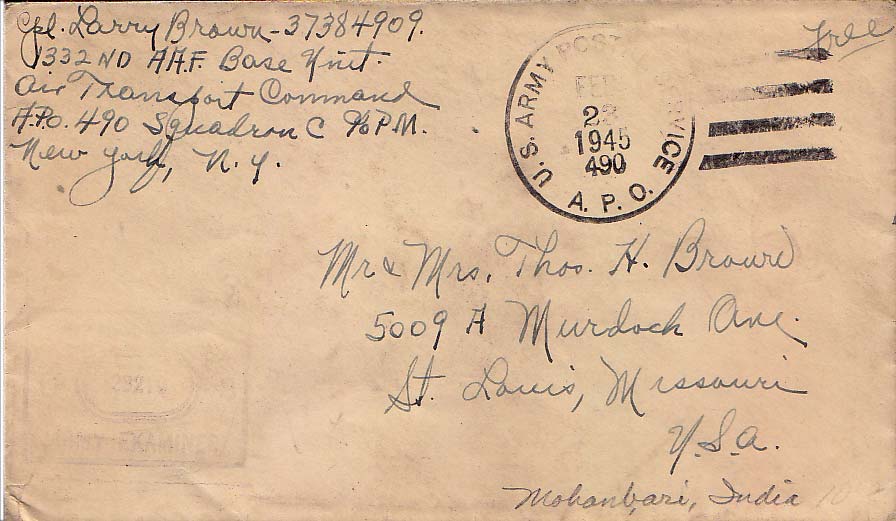 Cpl. Larry Brown-37384909.
1332ND AAF. Base Unit.
Air Transport Command
A.P.O. 490 Squadron C % P.M.
New York, N.Y.
Free
U.S. ARMY POSTAL SERVICE
FEB
22
1945
490
A.P.O.
Mr & Mrs. Thos. H. Brown
5009 A Murdock Ave.
St. Louis, Missouri
U.S.A.
Mohanbari, India
ARMY EXAMINER